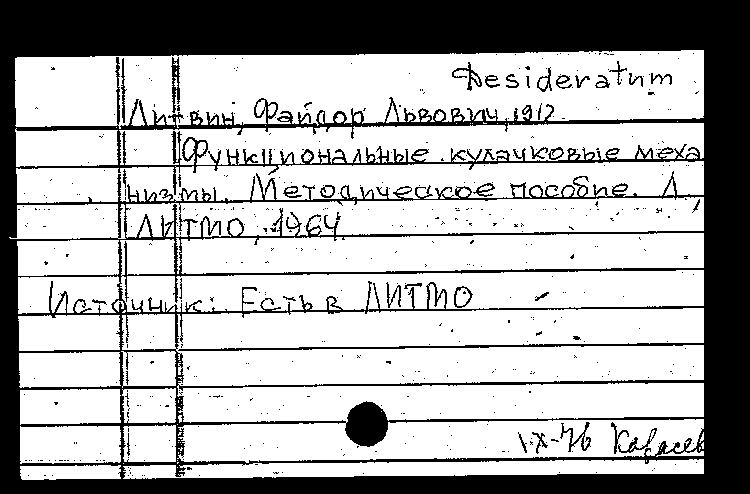 Desideratum
Литвин, Файдор Львович, 1912
Функциональные кулачковые меха
низмы. Методическое пособие. Л.,
ЛИТМО, 1964
Источник: Есть в ЛИТМО
IX-76 Карасев